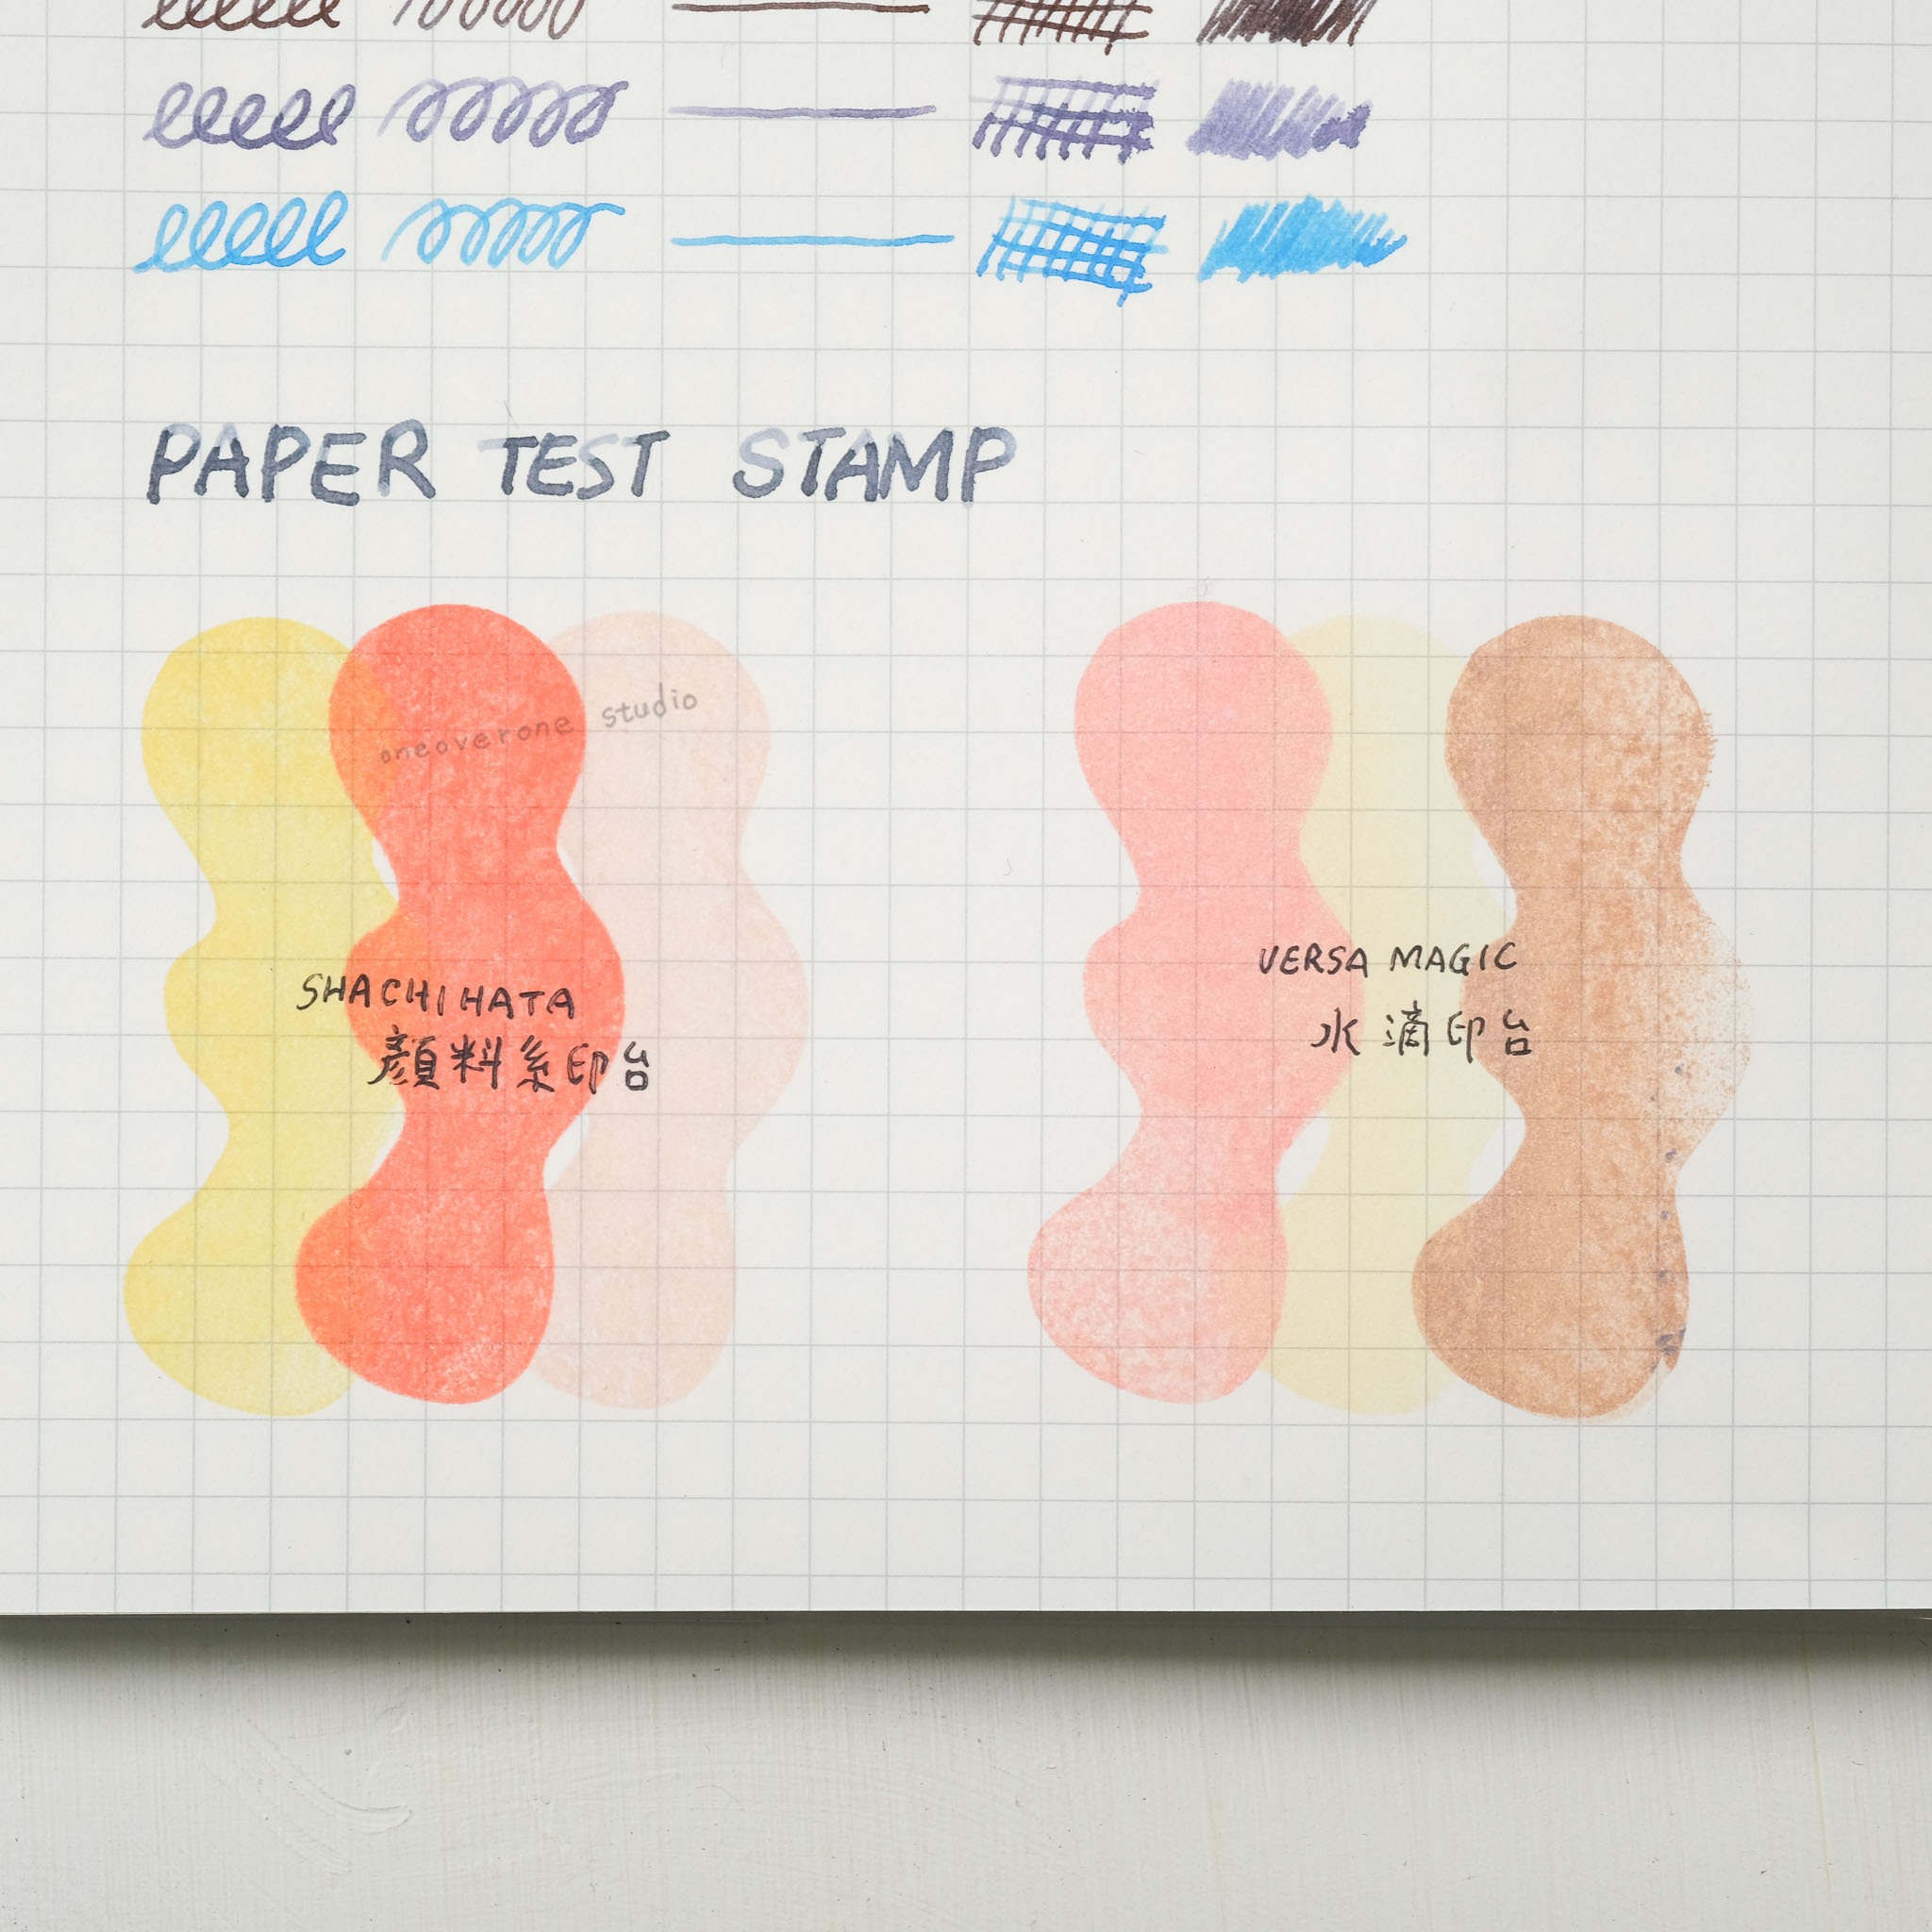 PAPER TEST STAMP
oneoverone studio
SHACHIHATA
顏料系印台
VERSA MAGIC
水滴印台